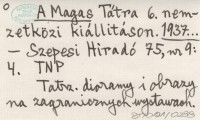 A Magas Tátra 6. nem-
zetközi kiállitáson. 1937...
– Szepesi Hiradó 75, nr 9:
4. TNP
Tatra. dioramy i obrazy
na zagranicznych wystawach.